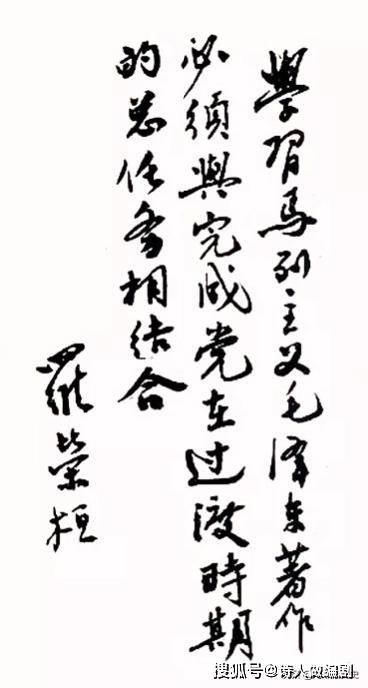 學習馬列主义毛泽东著作
必須與完成党在过渡時期
的总任务相结合
羅榮桓
搜狐号@诗人做编剧